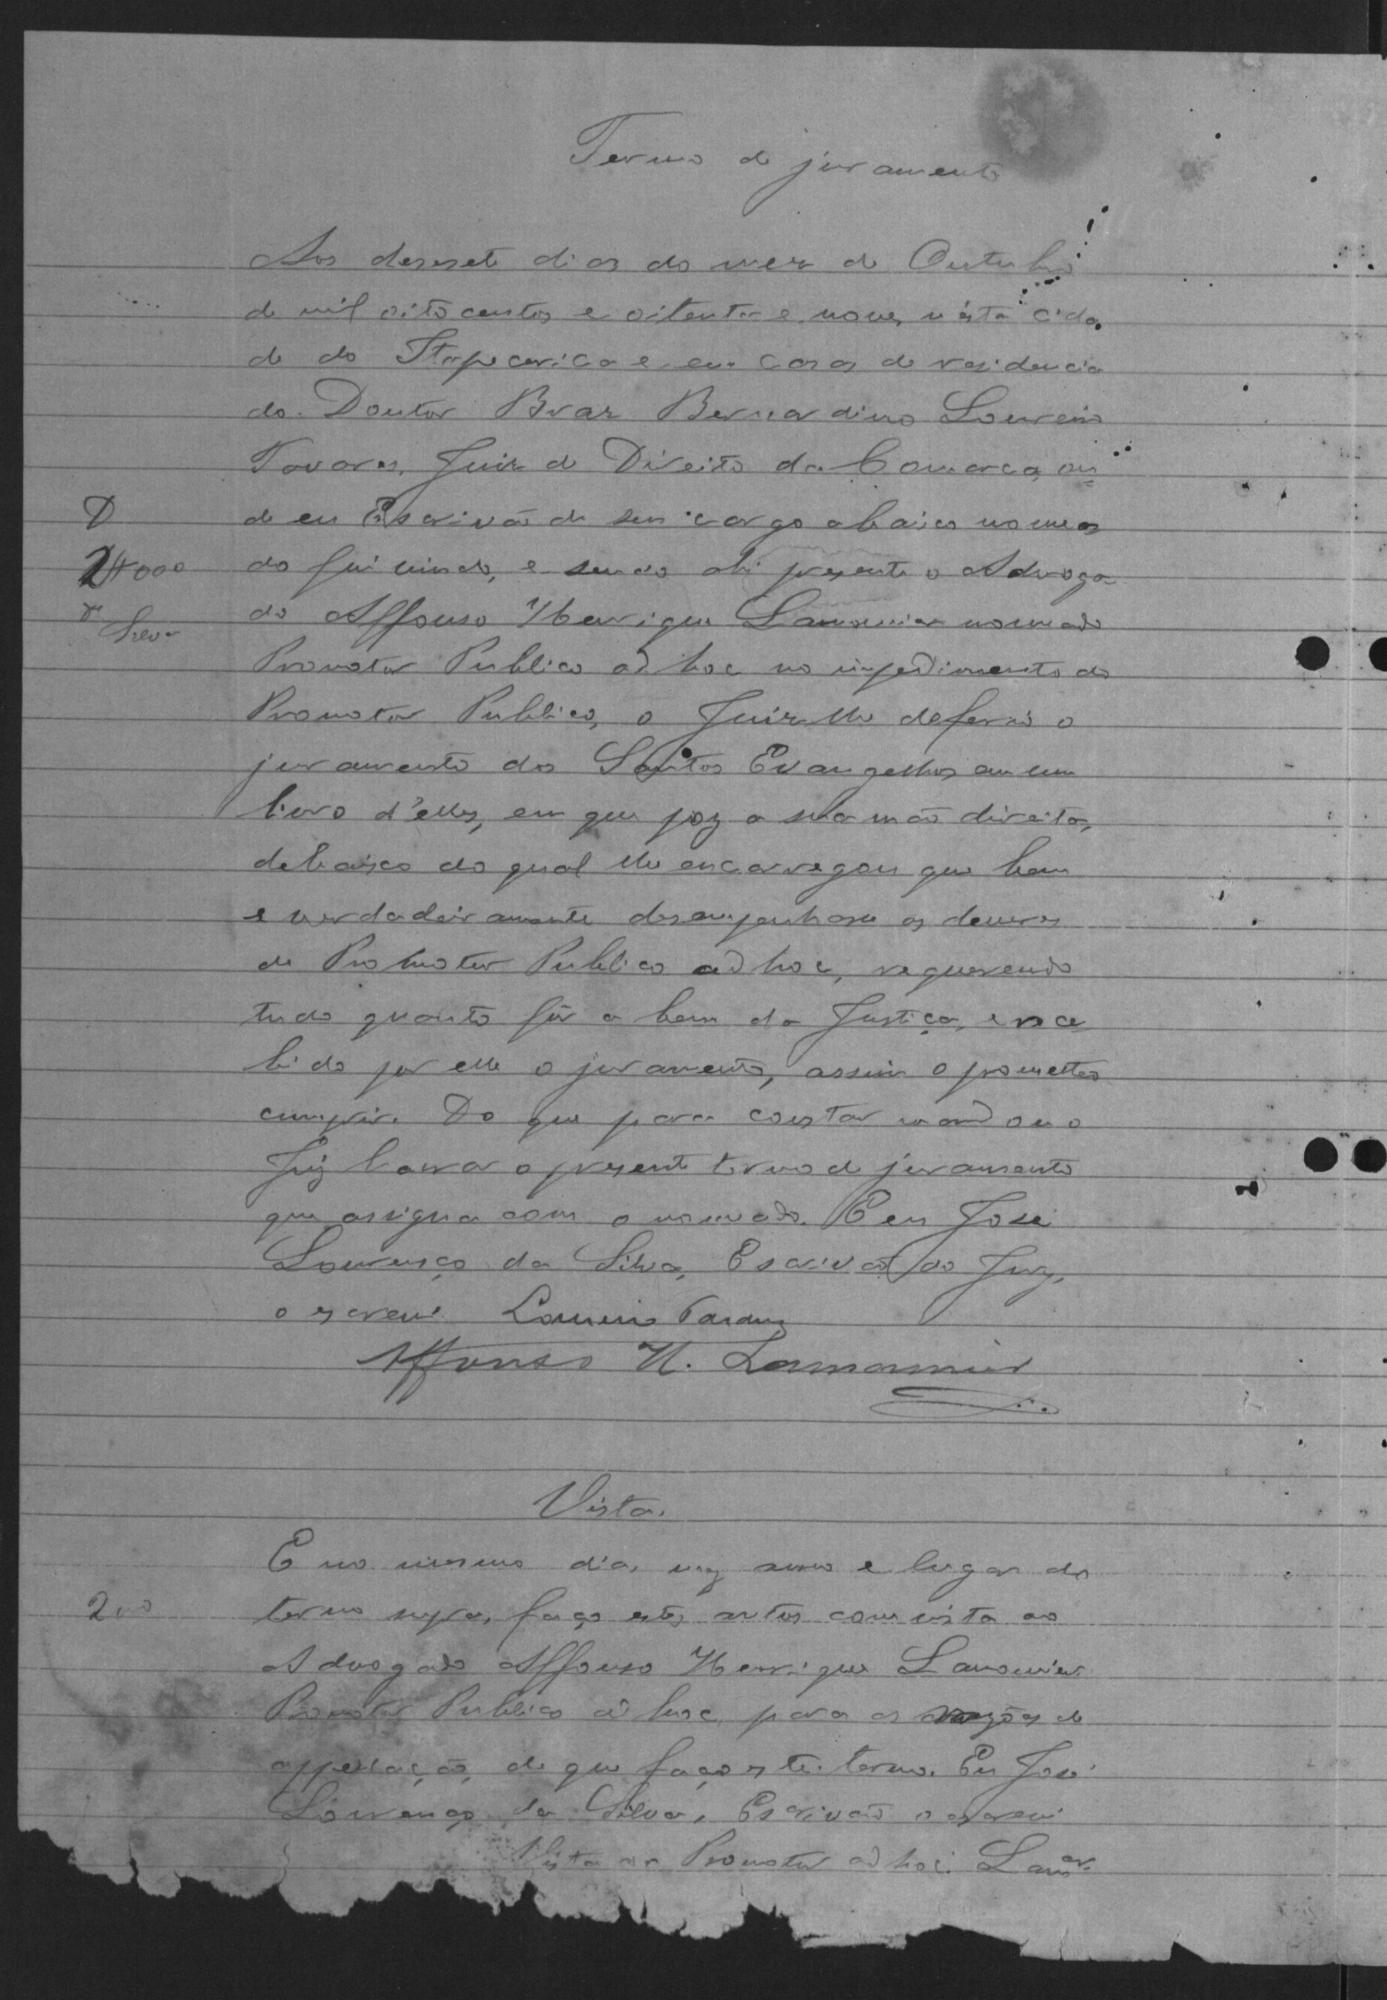 Termo de juramento
Aos desesete dias do mez de Outubro
de mil oito centos e oitenta e nove, n'esta cida
de do Itapecerica e em casa de residencia
do Doutor Braz Bernardino Loureiro
Tavares, Juiz de Direito da Comarca, on=
D
de eu Escrivão de seu cargo abaixo nomea
2#000
do fui vindo, e sendo ahi presente o Advoga
Silva
do Affonso Henrique Lamounier nomeado
Promotor Publico ad hoc no impedimento do
Promotor Publico, o Juiz lhe deferio o
juramento dos Santos Evangelhos em um
livro d'elles, em que poz a sua mão direita,
debaixo do qual lhe encarregou que bem
e verdadeiramente desempenhasse os deveres
de Promotor Publico ad hoc, requerendo
tudo quanto fôr a bem da Justiça, e rece
bido por elle o juramento, assim o prometteo
cumprir. Do que para constar mandou o
Juiz lavrar o presente termo de juramento
que assigna com o nomeado. Eu José
Lourenço da Silva, Escrivão do Jury,
o escrevi. Loureiro Tavares
Affonso H. Lamounier
Vista.
E no mesmo dia, mez anno e lugar do
200
termo supra, faço estes autos com vista ao
Advogado Affonso Henrique Lamounier
Promotor Publico ad hoc para as razões de
appellação, de que faço este termo. Eu José
Lourenço da Silva, Escrivão o escrevi
Vista ao Promotor ad hoc.